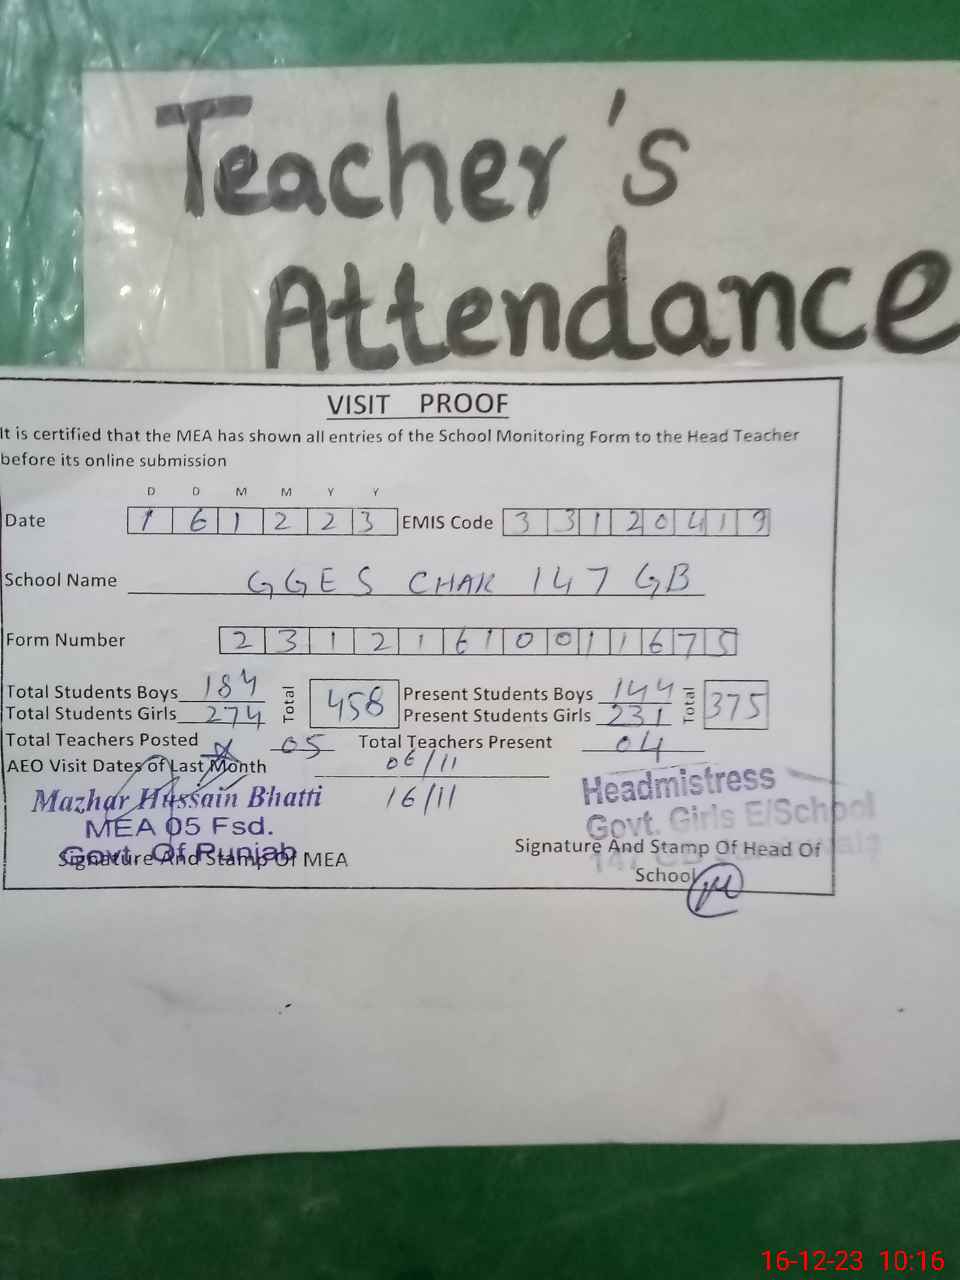 Teacher's
Attendance
VISIT PROOF
It is certified that the MEA has shown all entries of the School Monitoring Form to the Head Teacher
before its online submission
D D M M Y Y
Date 1 6 1 2 2 3 EMIS Code 3 3 1 2 0 4 1 9
School Name GGES CHAK 147 GB
Form Number 2 3 1 2 1 6 1 0 0 1 1 6 7 5
Total Students Boys 184 Total 458 Present Students Boys 144 Total 375
Total Students Girls 274 Present Students Girls 231
Total Teachers Posted 05 Total Teachers Present 04
AEO Visit Dates of Last Month 06/11
16/11
Mazhar Hussain Bhatti
MEA 05 Fsd.
Govt. Of Punjab
Signature And Stamp Of MEA
Headmistress
Govt. Girls E/School
147 GB
Signature And Stamp Of Head Of
School
16-12-23 10:16